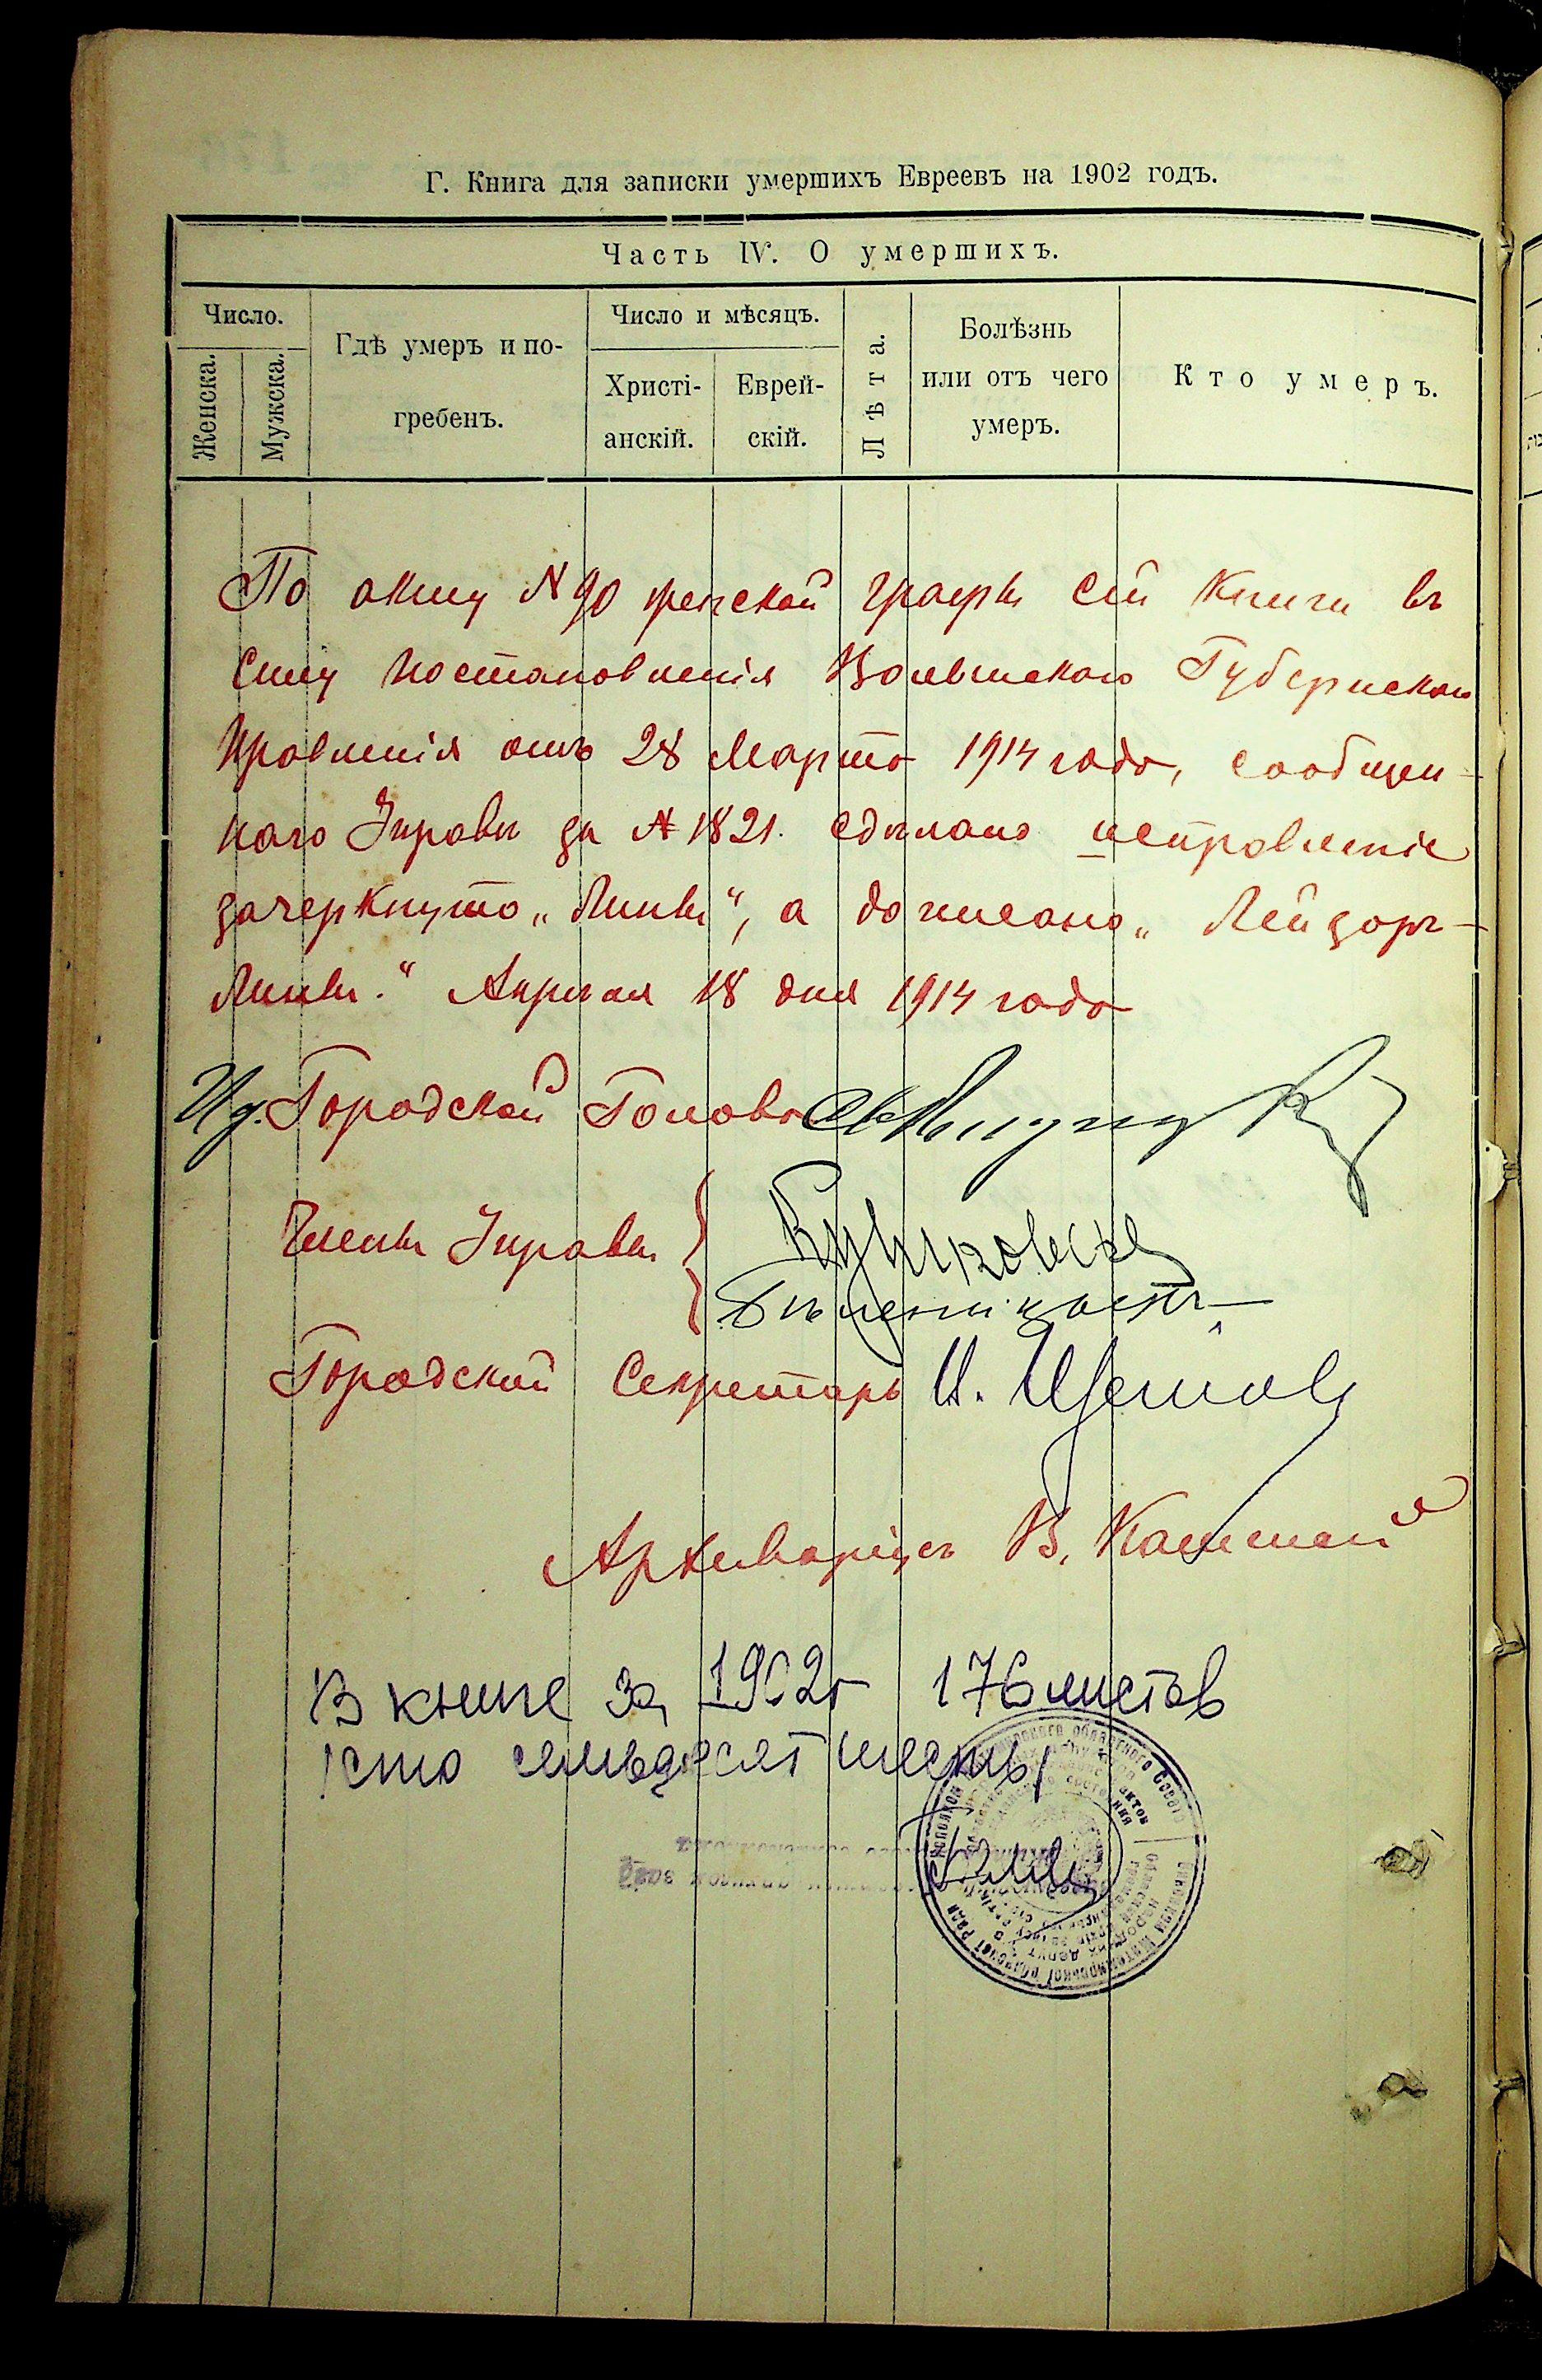 Г. Книга для записки умершихъ Евреевъ на 1902 годъ.
Часть IV. О умершихъ.
Число.
Женска.
Мужска.
Гдѣ умеръ и по-
гребенъ.
Число и мѣсяцъ.
Христі-
анскій.
Еврей-
скій.
Лѣта.
Болѣзнь
или отъ чего
умеръ.
Кто умеръ.
По акту N 90 женской графы сей книги въ
силу постановленія Волынскаго Губернскаго
Правленія отъ 28 Марта 1914 года, сообщен-
наго Управѣ за № 1821. сдѣлано исправленіе
зачеркнуто „Липы“, а дописано „Лейзоръ-
Липы.“ Апрѣля 18 дня 1914 года
И д. Городской Голова
Члены Управы
Городской Секретарь И.
Архиваріусъ В.
В книге за 1902г 176 листов
/сто семьдесят шесть/